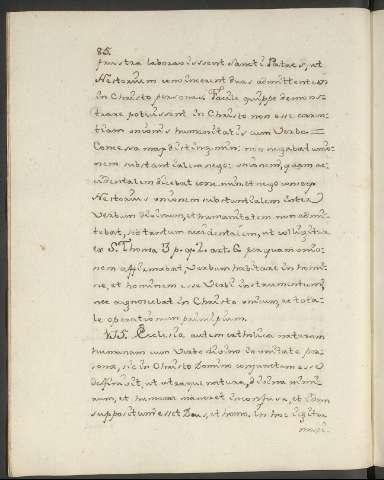 85.
frustra laboravissent Sancti Patres, ut
Nestorium convincerent duas admittentem
in Christo personas. Facile quippe demons-
trare potuissent in Christo non esse caren-
tiam unionis humanitatis cum Verbo=
Concessa maj disting. min. negabat unio-
nem substantialem nego: unionem, quam ac-
cidentalem dicebat conc. min. et nego conseq.
Nestorius unionem substantialem inter
Verbum divinum, et humanitatem non admi-
tebat, sed tantum accidentalem, ut colligitur
ex S. Thoma 3 p. q. 2. art. 6 per quam unio-
nem affirmabat, Verbum habitare in homi-
ne, et hominem esse Verbi instrumentum,
nec agnoscebat in Christo unicum, ac tota-
le operationum principium.
Ecclesia autem catholica naturam
humanam cum Verbo divino in unitate per-
sonæ, sic in Christo Domino conjunctam esse
deffinivit, ut utraque natura, divina nimi-
rum, et humana maneret inconfusa, et idem
suppositum esset Deus, et homo. In hoc igitur